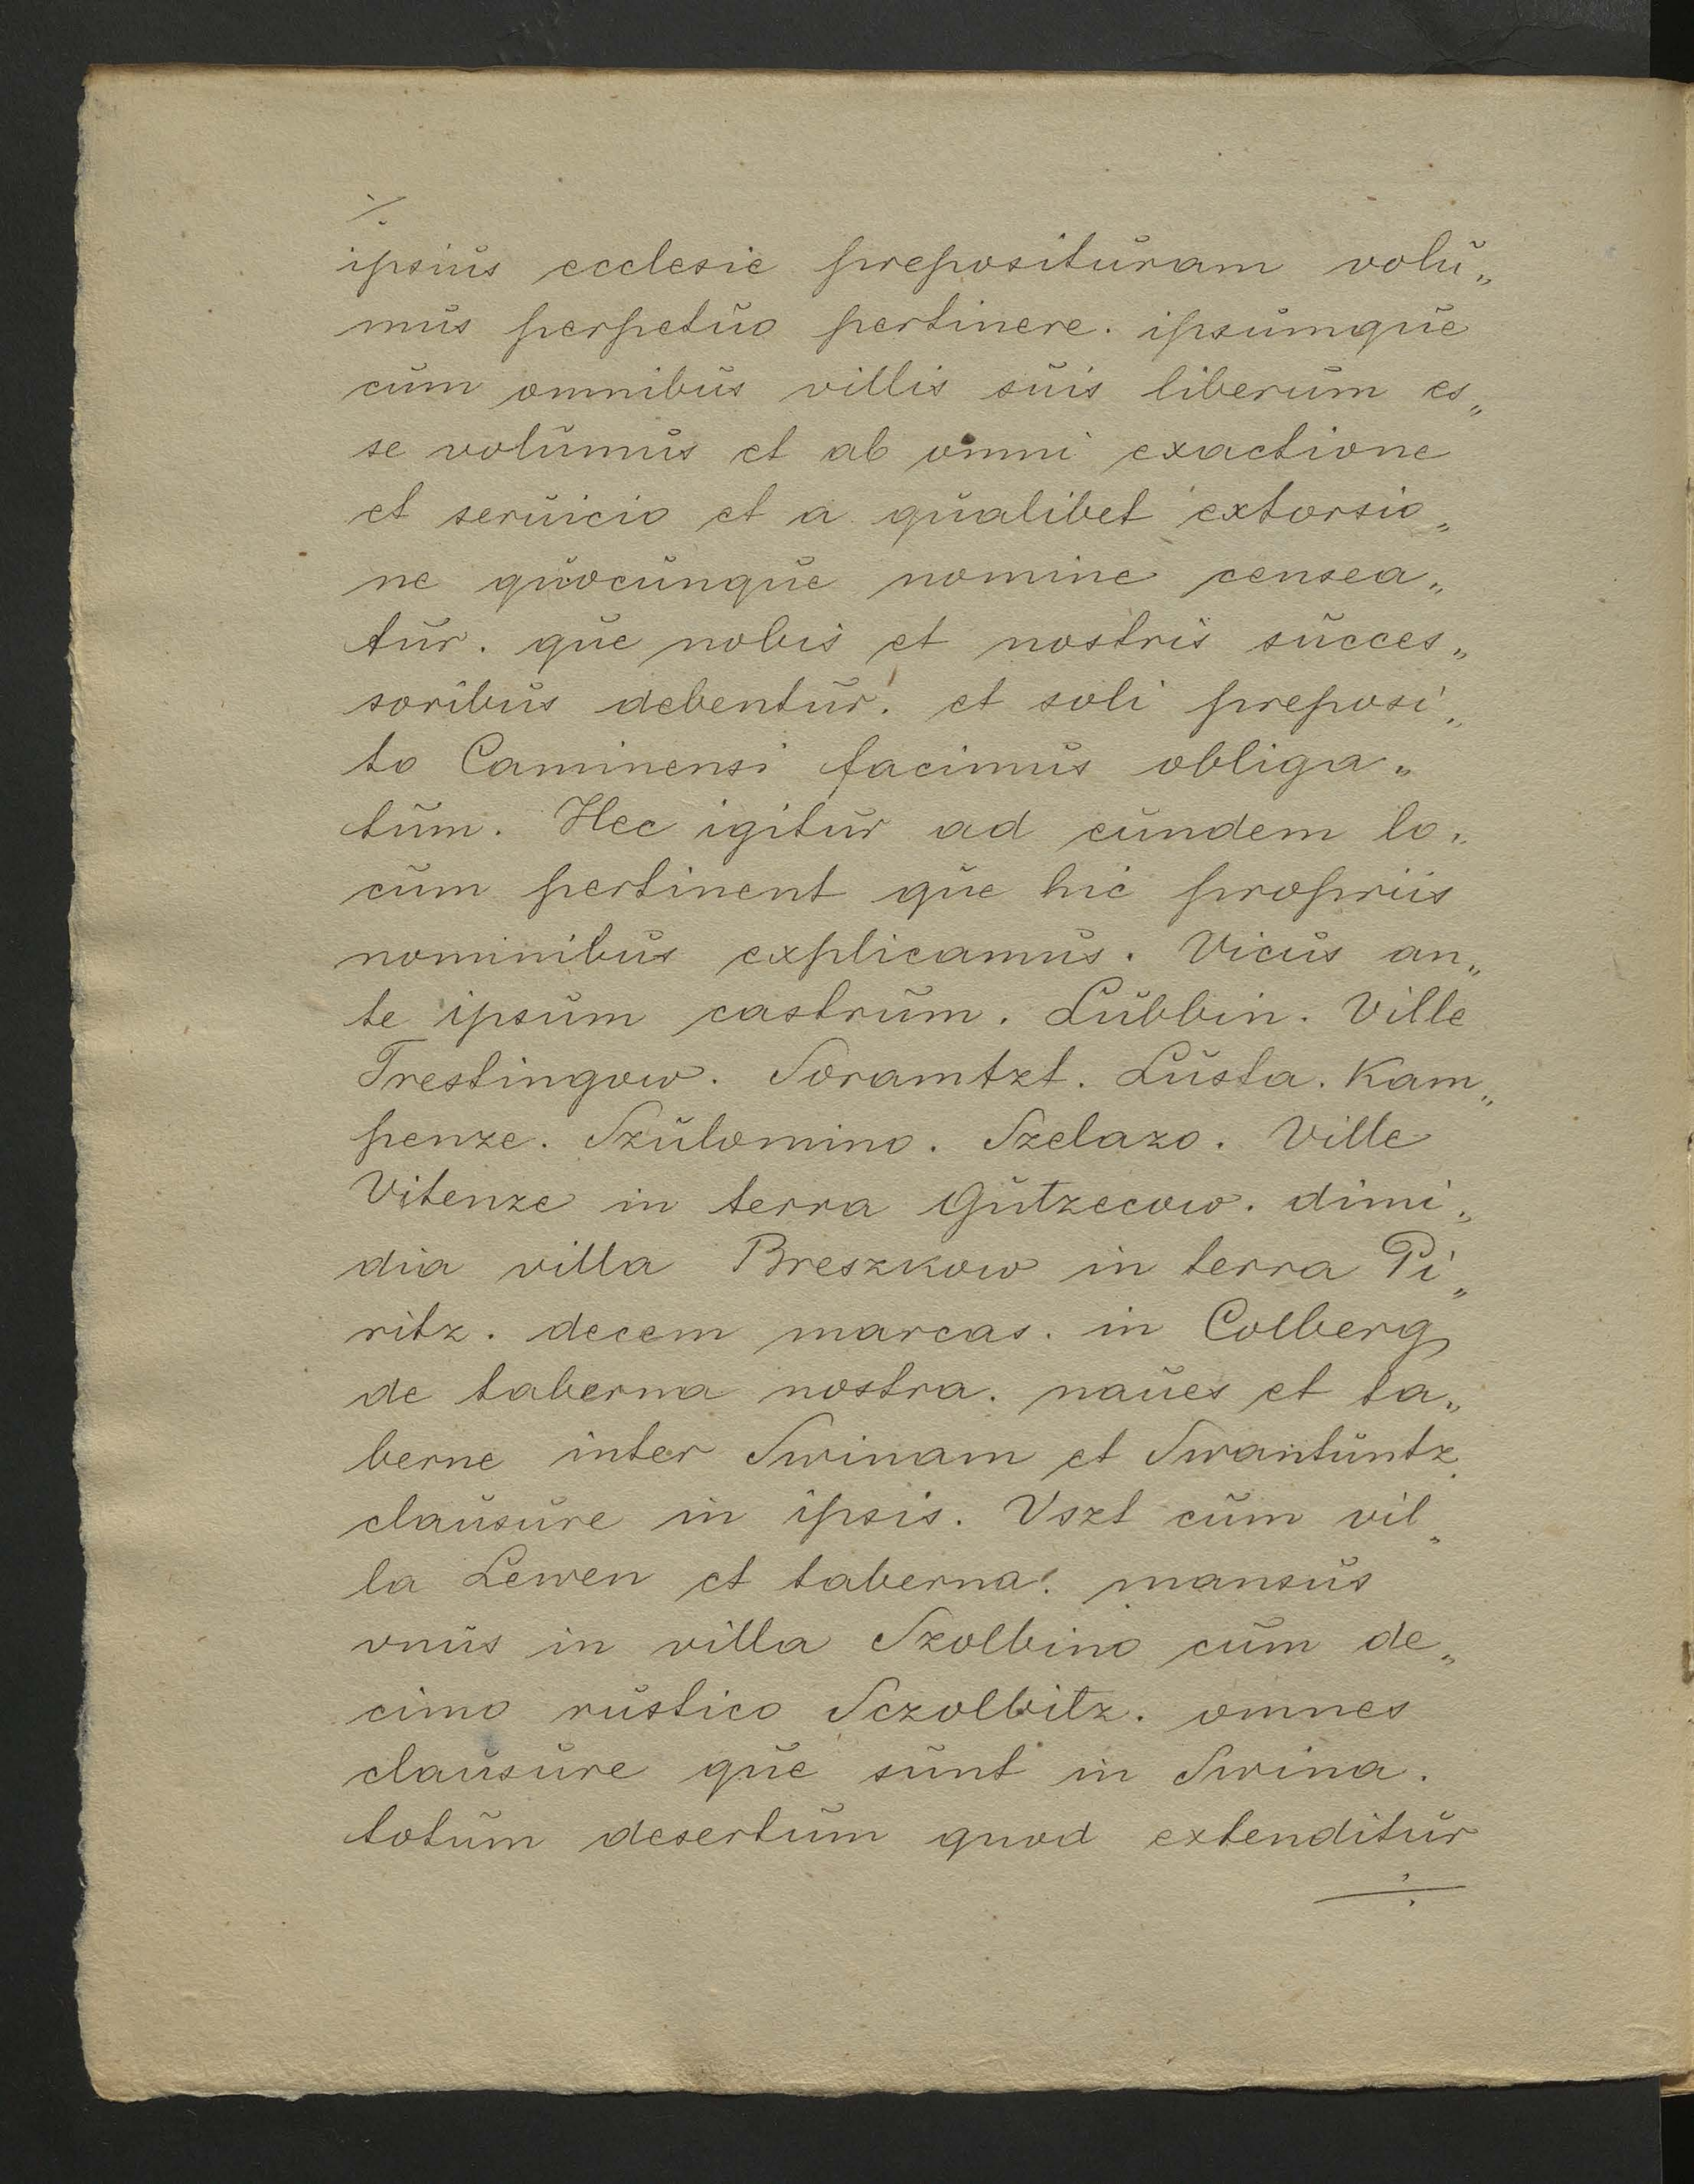 ./.
ipsius ecclesie preposituram volu„
mus perpetuo pertinere. ipsumque
cum omnibus villis suis liberum es„
se volumus et ab omni exactione
et seruicio et a qualibet extorsio„
ne quocunque nomine censea„
tur. que nobis et nostris succes„
soribus debentur. et soli preposi„
to Caminensi facimus obliga„
tum. Hec igitur ad eundem lo„
cum pertinent que hic propriis
nominibus explicamus. Vicus an„
te ipsum castrum. Lubbin. Ville
Trestingow. Soramtzt. Lusta. Kam„
penze. Szulomino. Szelazo. Ville
Vitenze in terra Gutzecow. dimi„
dia villa Breszkow in terra Pi„
ritz. decem marcas. in Colberg
de taberna nostra. naues et ta„
berne inter Swinam et Swantuntz
clausure in ipsis. Vszt cum vil„
la Lewen et taberna. mansus
vnus in villa Szolbino cum de„
cimo rustico Sczolbitz. omnes
clausure que sunt in Swina.
totum desertum quod extenditur
./.